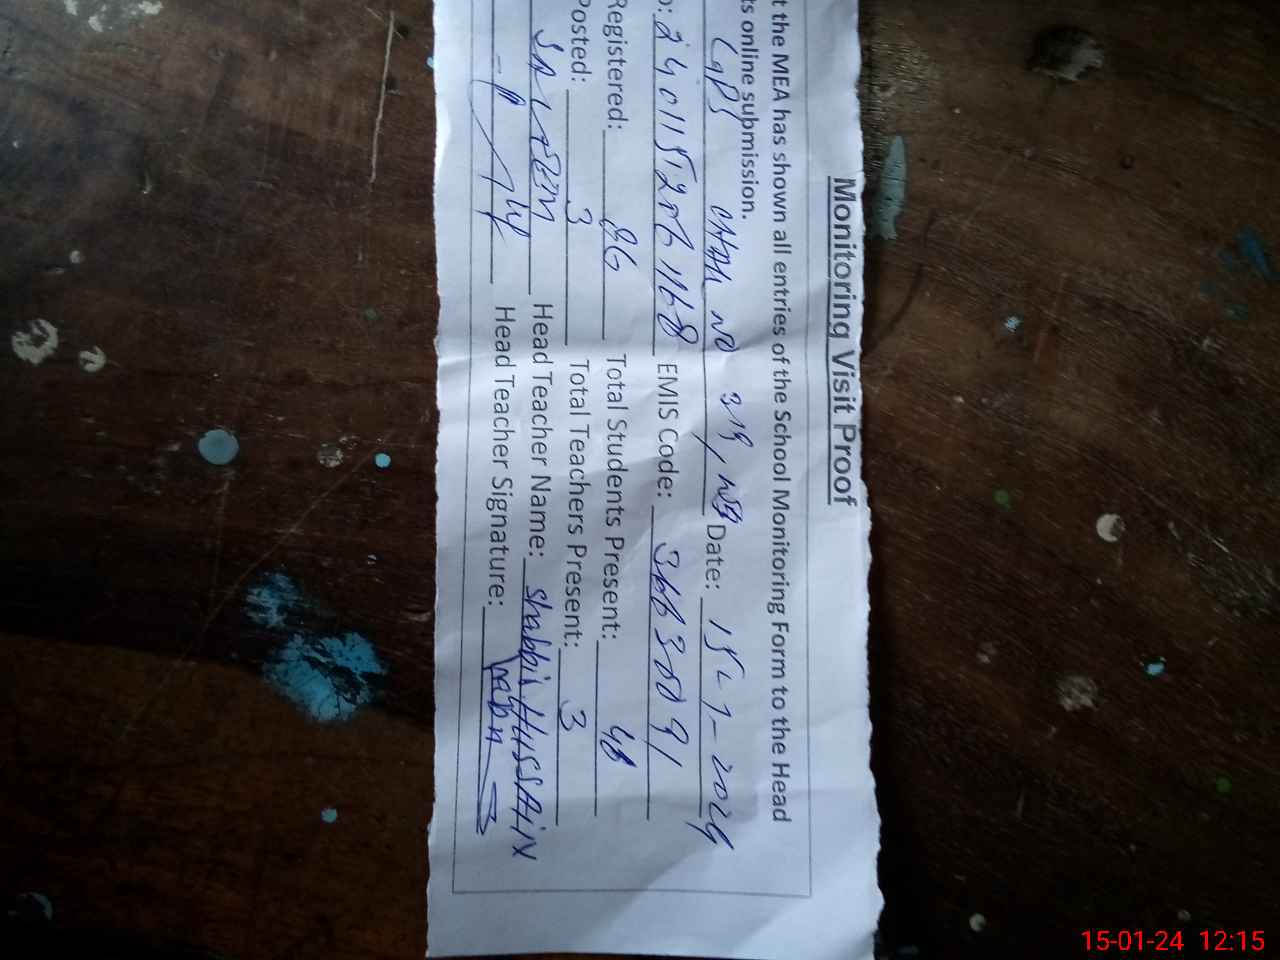 Monitoring Visit Proof
t the MEA has shown all entries of the School Monitoring Form to the Head
ts online submission.
GPS CHAH NO 319, Date: 15-1-2024
EMIS Code:
Registered: 86 Total Students Present: 48
Posted: 3 Total Teachers Present: 3
Head Teacher Name: Shabbir HUSSAIN
Head Teacher Signature:
15-01-24 12:15